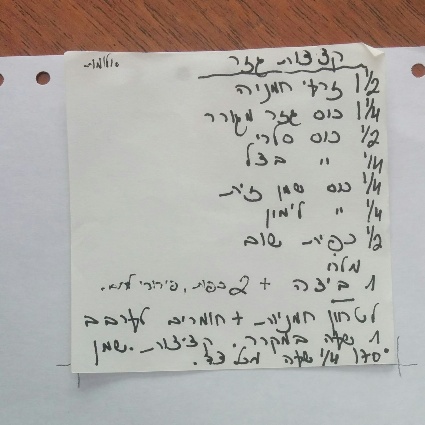 קציצות גזר
1 1/2 זרעי חמניה
1 1/4 כוס גזר מקורר
1/2 כוס סלרי
1/4 " בצל
1/4 כוס שמן זית
1/4 " לימון
1/2 כפית שום
מלח
1 ביצה + 2 כפות, פירורי
לטחון חמניות + חומרים לערבב
1 שעה במקרר. קציצות. שמן
170° 1/4 שעה מכל צד.